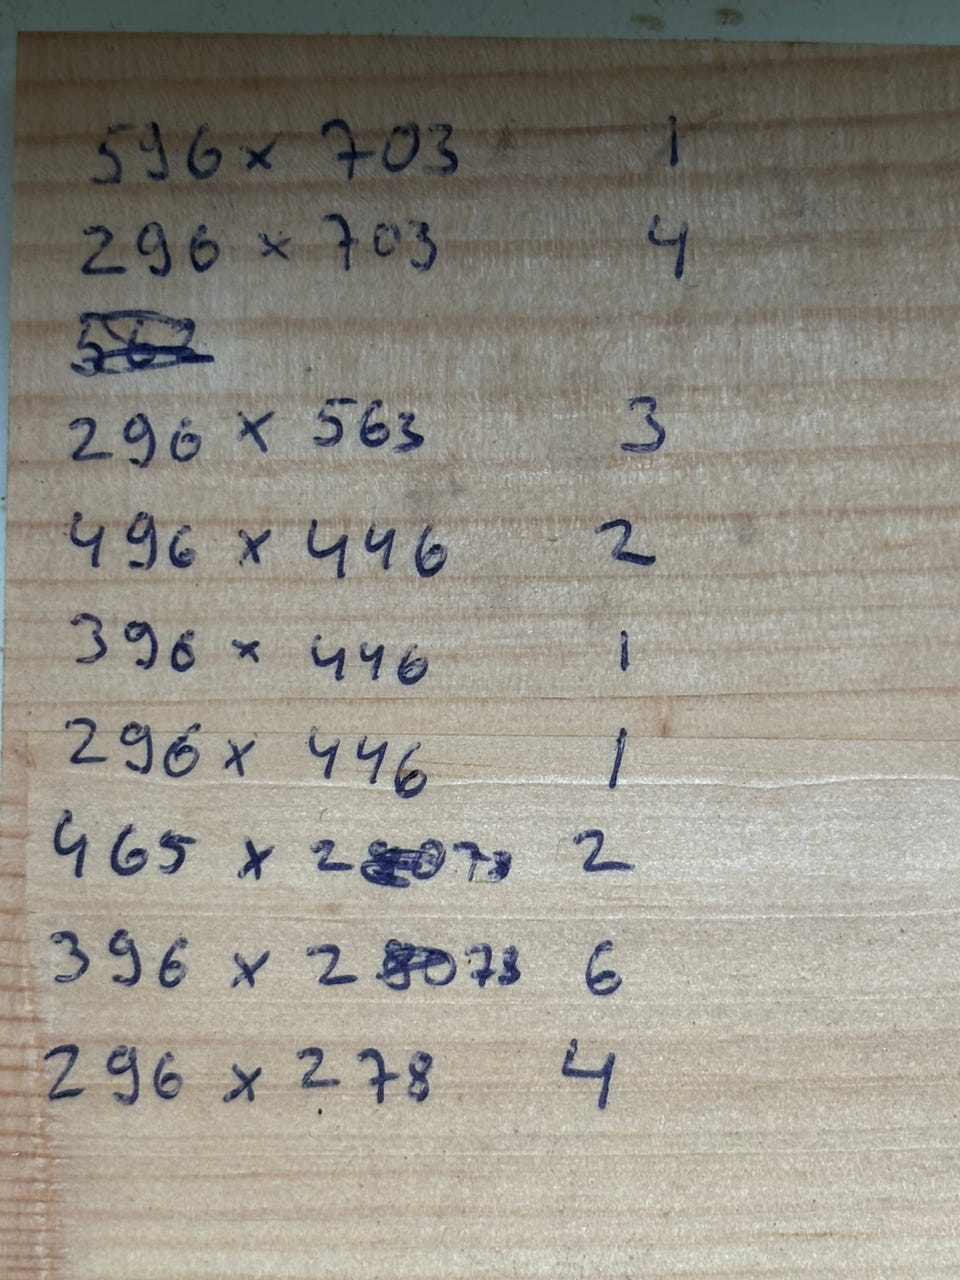 596 x 703 1
296 x 703 4
563
296 x 563 3
496 x 446 2
396 x 446 1
296 x 446 1
465 x 278 2
396 x 278 6
296 x 278 4